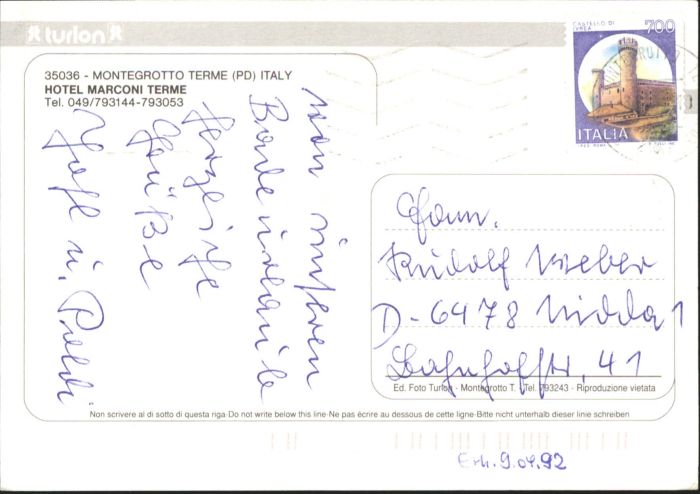 turlon
CASTELLO DI IVREA 700
ITALIA
35036 - MONTEGROTTO TERME (PD) ITALY
HOTEL MARCONI TERME
Tel. 049/793144-793053
Von unseren
Badeurlaub
herzliche
Grüße
u.
Fam.
Rudolf Weber
D-6478 Nidda 1
Bahnhofstr. 41
Ed. Foto Turlon - Montegrotto T. - Tel. 793243 - Riproduzione vietata
Non scrivere al di sotto di questa riga-Do not write below this line-Ne pas écrire au dessous de cette ligne-Bitte nicht unterhalb dieser linie schreiben
Erh. 9.04.92